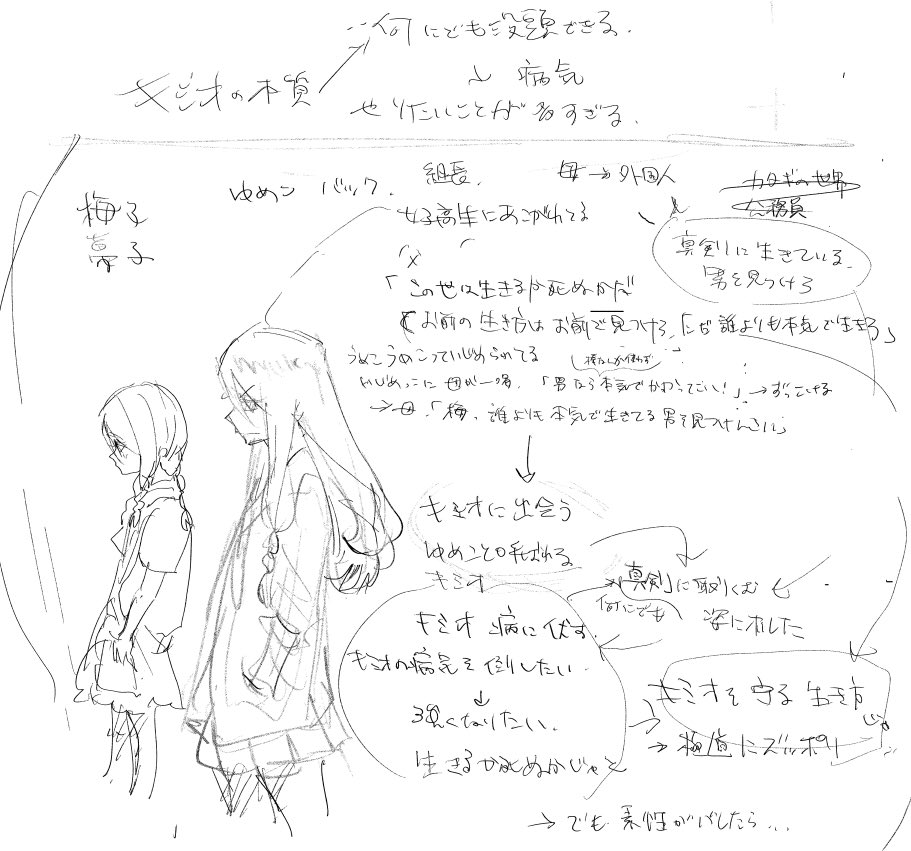 何にでも没頭できる。
キミオの本質
↓ 病気
やりたいことが多すぎる。
ゆめこ バック。
組長。
母→外国人
カタギの世界
公務員
梅子
夢子
女子高生にあこがれてる
真剣に生きている。
男を見つけろ
「この世は生きるか死ぬかだ
お前の生き方はお前で見つけろ。ただ誰よりも本気で生きろ」
うめこうめこっていじめられてる
いじめっこに母が一喝。「男なら本気でかかってこい!」→ずっこける
→母。「梅、誰よりも本気で生きてる男を見つけんさい」
キミオに出会う
ゆめこと呼ばれる
キミオ
「真剣」に取りくむ
何にでも
姿にホレた
キミオ 病に伏す。
キミオの病気を倒したい
↓
強くなりたい。
生きるか死ぬかじゃと
キミオを守る生き方
じゃ
→極道にズッポリ
→でも素性がバレたら...